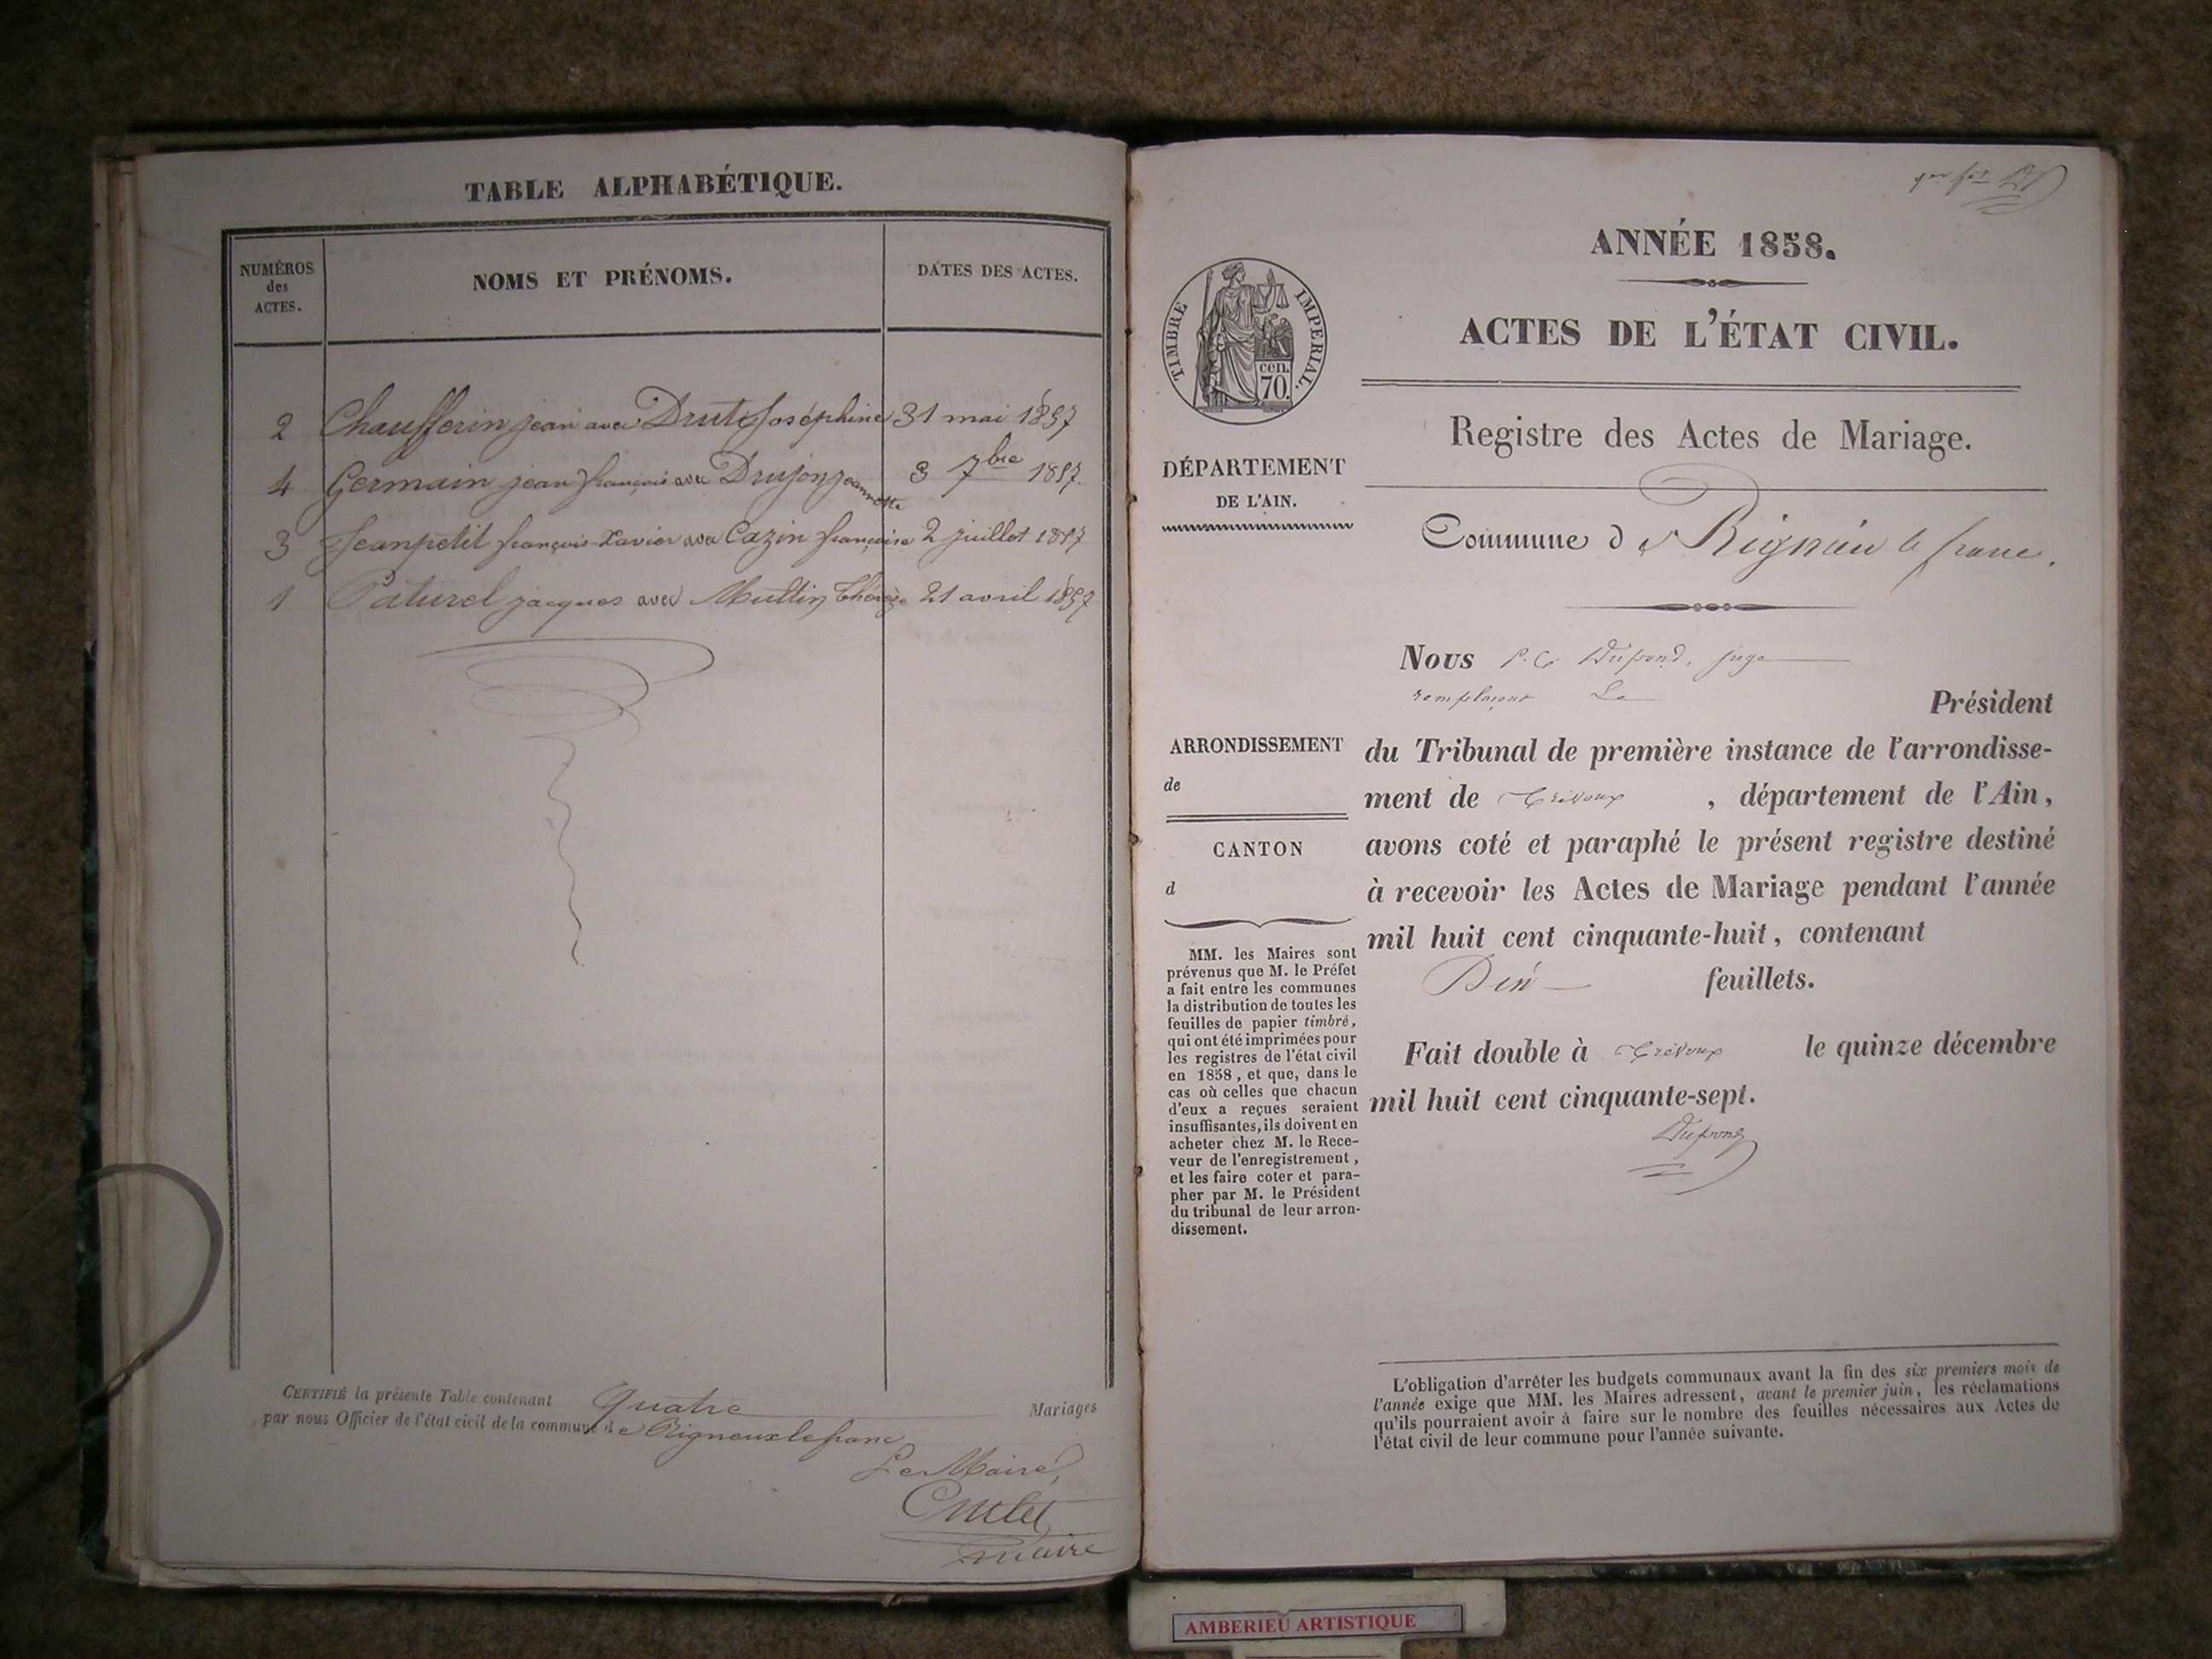 TABLE ALPHABÉTIQUE.
NUMÉROS des ACTES.
NOMS ET PRÉNOMS.
DATES DES ACTES.
2 Chaufferin jean avec Drut Joséphine 31 mai 1857
4 Germain jean françois avec Drujon jeannette 3 7bre 1857.
3 Jeanpetit françois-Xavier avec Cazin françoise 2 juillet 1857
1 Paturel jacques avec Muttin Thérèze 21 avril 1857
CERTIFIÉ la présente Table contenant quatre Mariages
par nous Officier de l'état civil de la commune de Rigneux le franc
Le Maire,
maire
ANNÉE 1858.
ACTES DE L'ÉTAT CIVIL.
TIMBRE IMPERIAL.
cen.
70.
Registre des Actes de Mariage.
DÉPARTEMENT
DE L'AIN.
Commune de Rignieu le franc.
Nous P. C. Dupond, juge
remplaçant Le
Président
ARRONDISSEMENT
de
CANTON
d
du Tribunal de première instance de l'arrondisse-
ment de Trévoux , département de l'Ain,
avons coté et paraphé le présent registre destiné
à recevoir les Actes de Mariage pendant l'année
mil huit cent cinquante-huit, contenant
feuillets.
Fait double à Trévoux le quinze décembre
mil huit cent cinquante-sept.
Dupond
MM. les Maires sont
prévenus que M. le Préfet
a fait entre les communes
la distribution de toutes les
feuilles de papier timbré,
qui ont été imprimées pour
les registres de l'état civil
en 1858, et que, dans le
cas où celles que chacun
d'eux a reçues seraient
insuffisantes, ils doivent en
acheter chez M. le Rece-
veur de l'enregistrement,
et les faire coter et para-
pher par M. le Président
du tribunal de leur arron-
dissement.
L'obligation d'arrêter les budgets communaux avant la fin des six premiers mois de
l'année exige que MM. les Maires adressent, avant le premier juin, les réclamations
qu'ils pourraient avoir à faire sur le nombre des feuilles nécessaires aux Actes de
l'état civil de leur commune pour l'année suivante.
AMBERIEU ARTISTIQUE